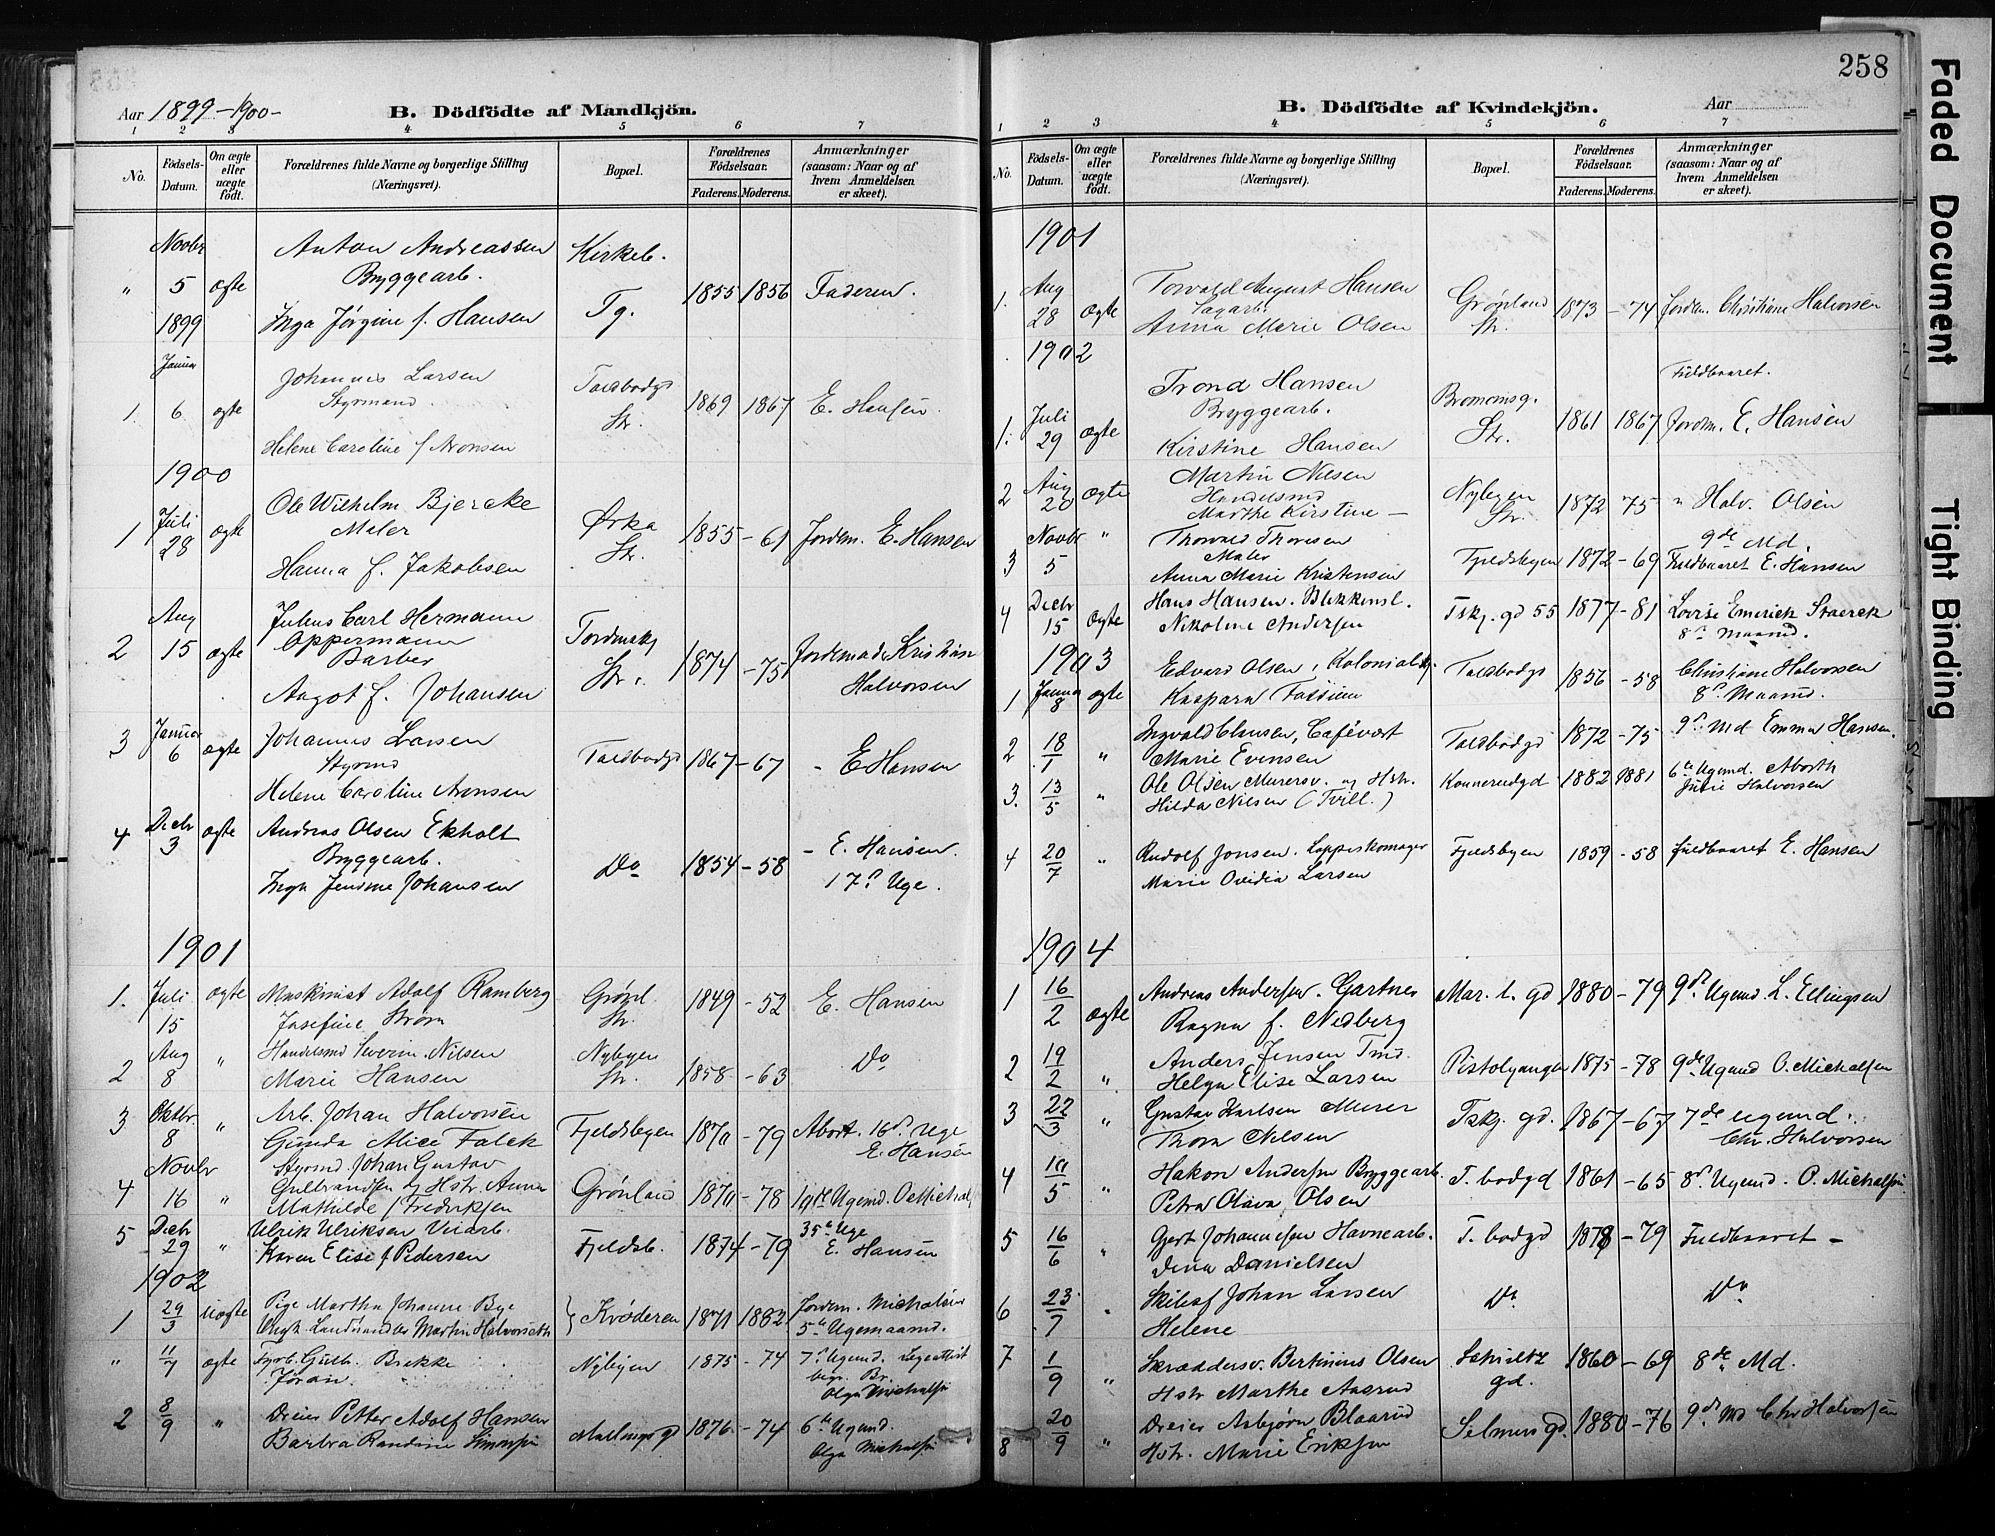 258
Aar 1899-1900-
B. Dödfödte af Mandkjön.
1 2 3 4 5 6 7
No.
Födsels-Datum.
Om ægte eller uægte födt.
Forældrenes fulde Navne og borgerlige Stilling (Næringsvet).
Bopæl.
Forældrenes Födselsaar.
Faderens. Moderens.
Anmærkninger (saasom: Naar og af hvem Anmeldelsen er skeet).
Novbr
Anton Andreassen Kirkeb.
Byggearb.
" 5 ægte 1855 1856 Faderen.
Inga Jørgine f. Hansen Tg.
1899
Januar
Johannes Larsen Toldbodgd
Styrmand Str.
1. 6 ægte 1869 1867 E. Hansen.
Helene Caroline f Aronsen
1900
Ole Wilhelm Bjercke
Juli Maler Ørka
1 28 ægte Str. 1855-61 Jordem. E. Hansen
Hanna f. Jakobsen
Aug
Julius Carl Hermann
Oppermann Tordenskj
2 15 ægte Barber Str. 1874-75 Jordemoder Kristiane
Aagot f. Johansen Halvorsen
3 Januar 6 ægte Johannes Larsen
Styrmd Toldbodgd 1867-67 - E Hansen
Helene Caroline Aronsen
4 Decbr 3 ægte Andreas Olsen Ekholt
Byggearb. Do 1854-58 - E. Hansen.
Inga Johansen 17de Uge.
1901
1. Juli 15 ægte Maskinist Adolf Ramberg Grønl. Str. 1849-52 E. Hansen
Josefine Strøm
2 Aug 8 " Handelsmd Severin Nilsen Nybyen Str. 1858-63 Do
Marie Hansen
3 Oktbr 8 " Arb. Johan Halvorsen Fjeldsbyen 1870-79 Abort. 16de Uge
Gunda Alice Falck E. Hansen
4 Novbr 16 " Styrmd. Johan Gustav
Gulbrandsen og Hstr. Anna Grønland 1870-78 Ugemd. O. Michal
Mathilde f Fredriksen
5 Decbr 29 " Ulrik Ulriksen Veiarb. Fjeldsb. 1874-79 35te Uge
Karen Elise f Pedersen E. Hansen
1902
1 29/3 uægte Pige Martha Johanne Bye Krøderen 1871 1882 Jordem. Michalsen
Ungk. Martin Halvorseth 5te Ugemaaned.
" 11/7 ægte Fyrb. Gulb. Brekke Nybyen 1875-74 7de Ugemd. Lægeattest
Jøran begr. Br.
Olga Michalsen
2 8/9 " Dreier Petter Adolf Hansen Mallings gd 1876-74 6te Ugemd.
Barbra Randine Simonsen Olga Michalsen
B. Dödfödte af Kvindekjön.
Aar
1 2 3 4 5 6 7
No.
Födsels-Datum.
Om ægte eller uægte födt.
Forældrenes fulde Navne og borgerlige Stilling (Næringsvet).
Bopæl.
Forældrenes Födselsaar.
Faderens. Moderens.
Anmærkninger (saasom: Naar og af hvem Anmeldelsen er skeet).
1901
1. Aug 28 ægte Torvald August Hansen Grønland str. 1873-74 Jordm. Christiane Halvorsen
Sagarb.
Anna Marie Olsen
1902
Fuldbaaret.
1. Juli 29 ægte Trond Hansen Str. 1861 1867 Jordm. E. Hansen
Byggearb.
Kirstine Hansen
2 Aug 20 ægte Martin Nilsen Nybyen Str. 1872 75 " Halv. Olsen
Handelsmd 9de Md.
Marthe Kirstine -
3 Novbr 5 " Thorvald Thoresen Fjeldsbyen 1872-69 Fuldbaaret E. Hansen
Maler
Anna Marie Kristensen
4 Decbr 15 ægte Hans Hansen. Blikkensl. Tskj. gd 55 1877-81 Lovise Emerick Staerck
Nikoline Andersen 8de Maaned.
1903
1 Januar 8 ægte Edvard Olsen, Kolonial Toldbodgd 1856-58 Christiane Halvorsen
Kaspara Fossum 8de Maaned.
2 18/1 " Ingvald Clausen, Cafévært Toldbodgd 1872-75 9de Md Emma Hansen.
Marie Evensen
3. 13/5 " Ole Olsen Murersv. og Hstr. Konnerudgd 1882 1881 6te Ugemd. Aborth
Hilda Nilsen (Tvill.) Julie Halvorsen
4 20/7 " Rudolf Jonsen. Lappeskomager Fjeldsbyen 1859-58 fuldbaaret E. Hansen
Marie Ovidia Larsen
1904
1 16/2 ægte Andreas Andersen. Gartner Mar. l. gd 1880-79 9de Ugemd. L. Ellingsen
Ragna f. Nedberg
2 19/2 " Anders Jensen Tmd. Pistolganger 1875-78 9de Ugemd O. Michalsen
Helga Elise Larsen
3 22/3 " Gustav Karlsen Murer Tskj. gd. 1867-67 7de Ugemd.
Thora Nilsen Chr. Halvorsen
4 10/5 " Hakon Andersen Byggearb. T. bodgd 1861-65 8de Ugemd. O. Michalsen
Petra Olava Olsen
5 16/6 " Gert Johannesen Havnearb. T. bodgd 1878-79 Fuldbaaret -
Dina Danielsen
6 23/7 " Johan Larsen Do Do
Helene
7 1/9 " Skræddersv. Bertinius Olsen Schultz gd. 1860-69 8de Md.
Hstr Marthe Aasrud
8 20/9 " Dreier Asbjørn Blaarud Selmers gd. 1880-76 9de Md Chr Halvorsen
Hstr. Marie Eriksen
Faded Document
Tight Binding